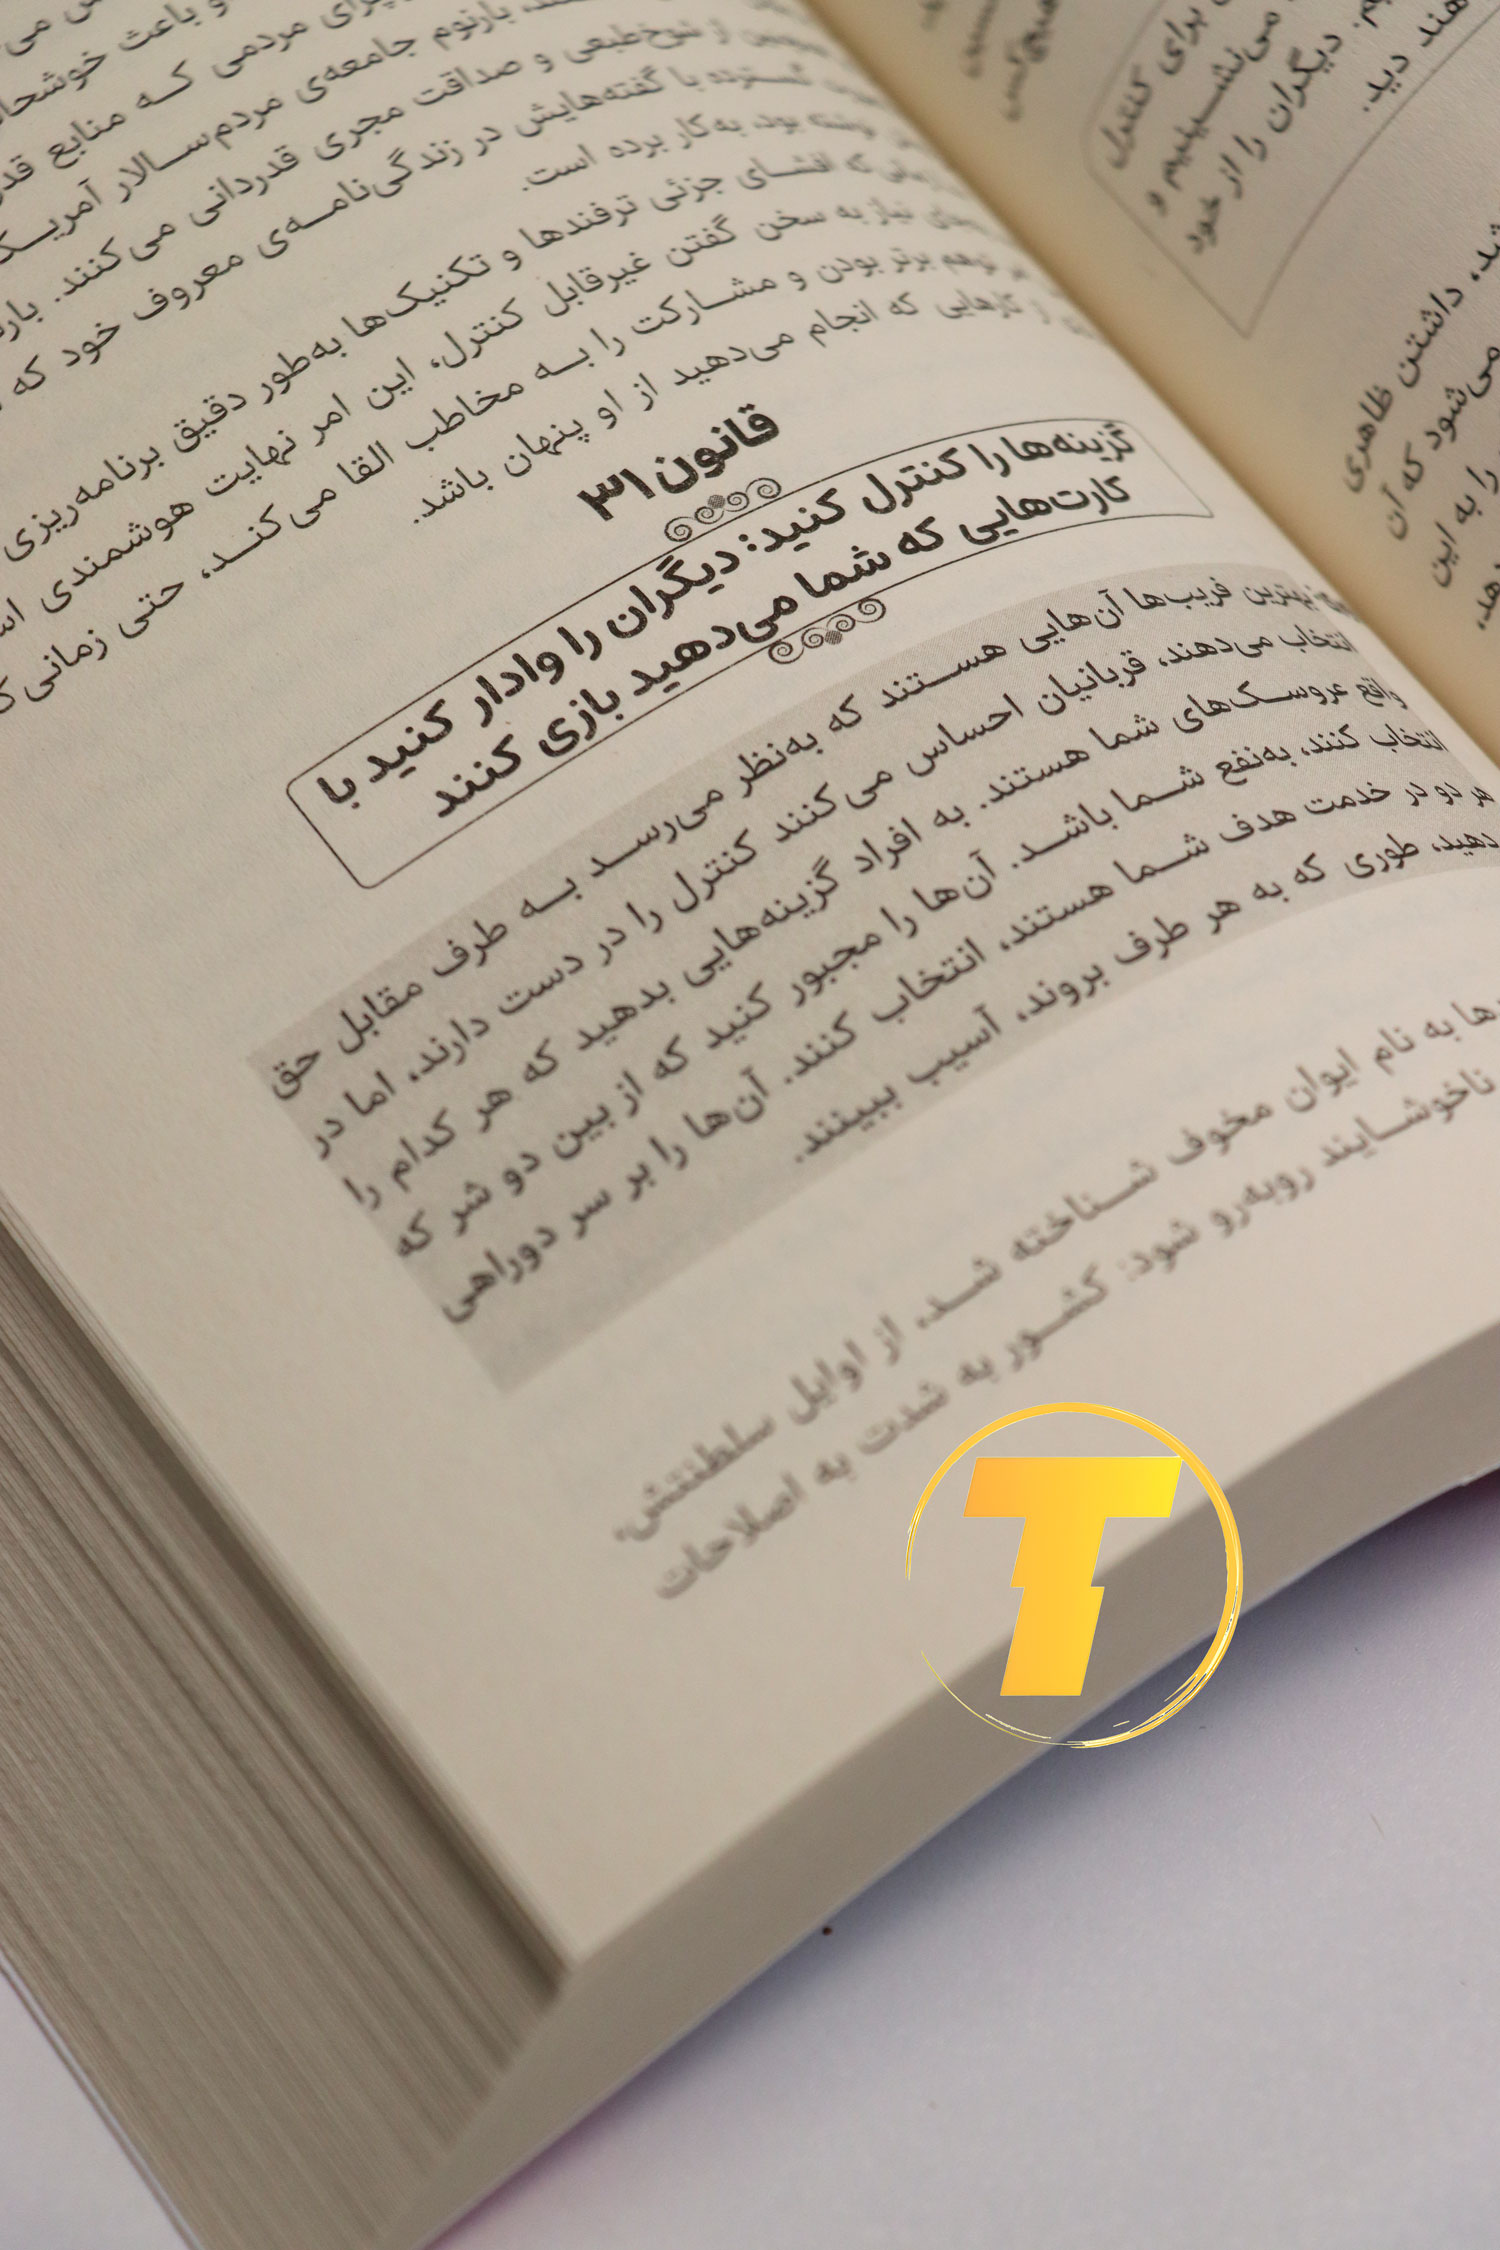 و باعث خوشحالی
مردمی کـه منابع قدر
بارنوم جامعه‌ی مردم‌سـالار آمریـکـ
از شوخ‌طبعی و صداقت مجری قدردانی می‌کنند. بارنـ
گسترده با گفته‌هایش در زندگی‌نامـه‌ی معروف خود که
نوشته بود، به‌کار برده است.
که افشـای جزئی ترفندها و تکنیک‌ها به‌طور دقیق برنامه‌ریزی
نیاز به سخن گفتن غیرقابل کنترل، این امر نهایت هوشمندی
توهم برتر بودن و مشـارکت را بـه مخاطب القا می‌کنـد، حتی زمانی‌کـ
از کارهایی که انجام می‌دهید از او پنهان باشد.
قانون ۳۱
گزینه‌ها را کنترل کنید: دیگران را وادار کنید با
کارت‌هایی که شما می‌دهید بازی کنند
بهترین فریب‌ها آن‌هایی هستند که به‌نظر می‌رسـد بـه طرف مقابل حق
انتخاب می‌دهند، قربانیان احساس می‌کنند کنترل را در دست دارند، اما در
واقع عروسـک‌های شما هستند. به افراد گزینه‌هایی بدهید که هر کدام را
انتخاب کنند، به‌نفع شـما باشـد. آن‌ها را مجبور کنید که از بین دو شر که
هر دو در خدمت هدف شـما هستند، انتخاب کنند. آن‌ها را بر سر دوراهی
دهید، طوری که به هر طرف بروند، آسیب ببینند.
به نام ایوان مخوف شـناخته شـد، از اوایل سلطنتش،
ناخوشـایند روبه‌رو شود: کشـور به شدت به اصلاحات
برای کنترل
می‌نشـینیم و
دیگران را از خود
هند دید.
داشتن ظاهری
می‌شود که آن
را به این
T